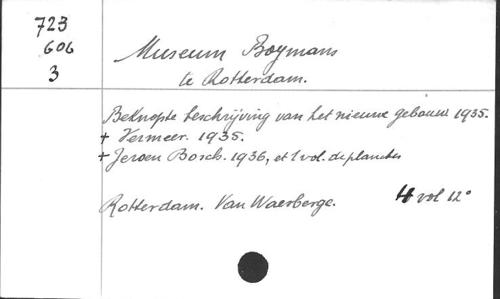 723
606
3
Museum Boymans
te Rotterdam.
Beknopte beschrijving van het nieuwe gebouw 1935.
+ Vermeer. 1935.
+ Jeroen Bosch. 1936, et 1 vol. de planches
Rotterdam. Van Waesberge. 4 vol 12°